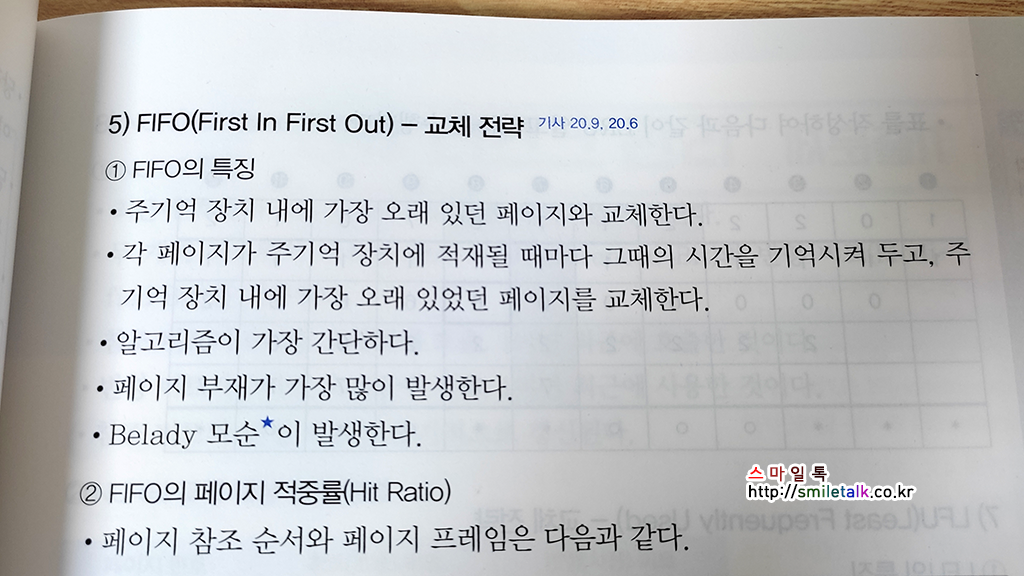 5) FIFO(First In First Out) – 교체 전략 기사 20.9, 20.6
① FIFO의 특징
• 주기억 장치 내에 가장 오래 있던 페이지와 교체한다.
• 각 페이지가 주기억 장치에 적재될 때마다 그때의 시간을 기억시켜 두고, 주
기억 장치 내에 가장 오래 있었던 페이지를 교체한다.
• 알고리즘이 가장 간단하다.
• 페이지 부재가 가장 많이 발생한다.
• Belady 모순★이 발생한다.
② FIFO의 페이지 적중률(Hit Ratio)
스마일톡
http://smiletalk.co.kr
• 페이지 참조 순서와 페이지 프레임은 다음과 같다.